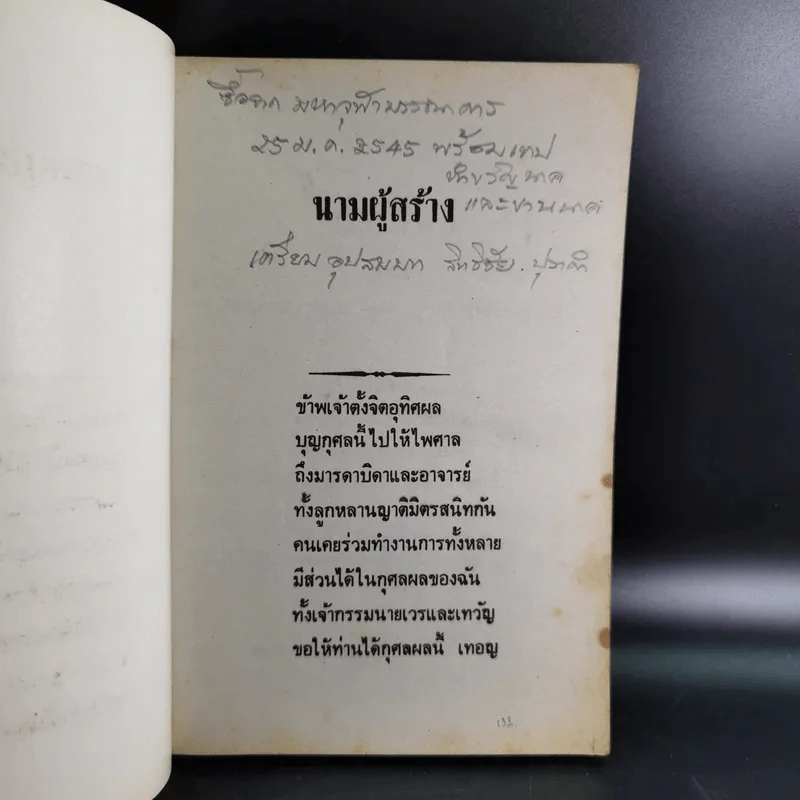 ซื้อจาก มหาจุฬาบรรณาคาร
25 ม.ค. 2545 พร้อมเทป
ทำขวัญนาค
และขานนาค
นามผู้สร้าง
เตรียมอุปสมบท สิทธิชัย
ข้าพเจ้าตั้งจิตอุทิศผล
บุญกุศลนี้ไปให้ไพศาล
ถึงมารดาบิดาและอาจารย์
ทั้งลูกหลานญาติมิตรสนิทกัน
คนเคยร่วมทำงานการทั้งหลาย
มีส่วนได้ในกุศลผลของฉัน
ทั้งเจ้ากรรมนายเวรและเทวัญ
ขอให้ท่านได้กุศลผลนี้ เทอญ
132